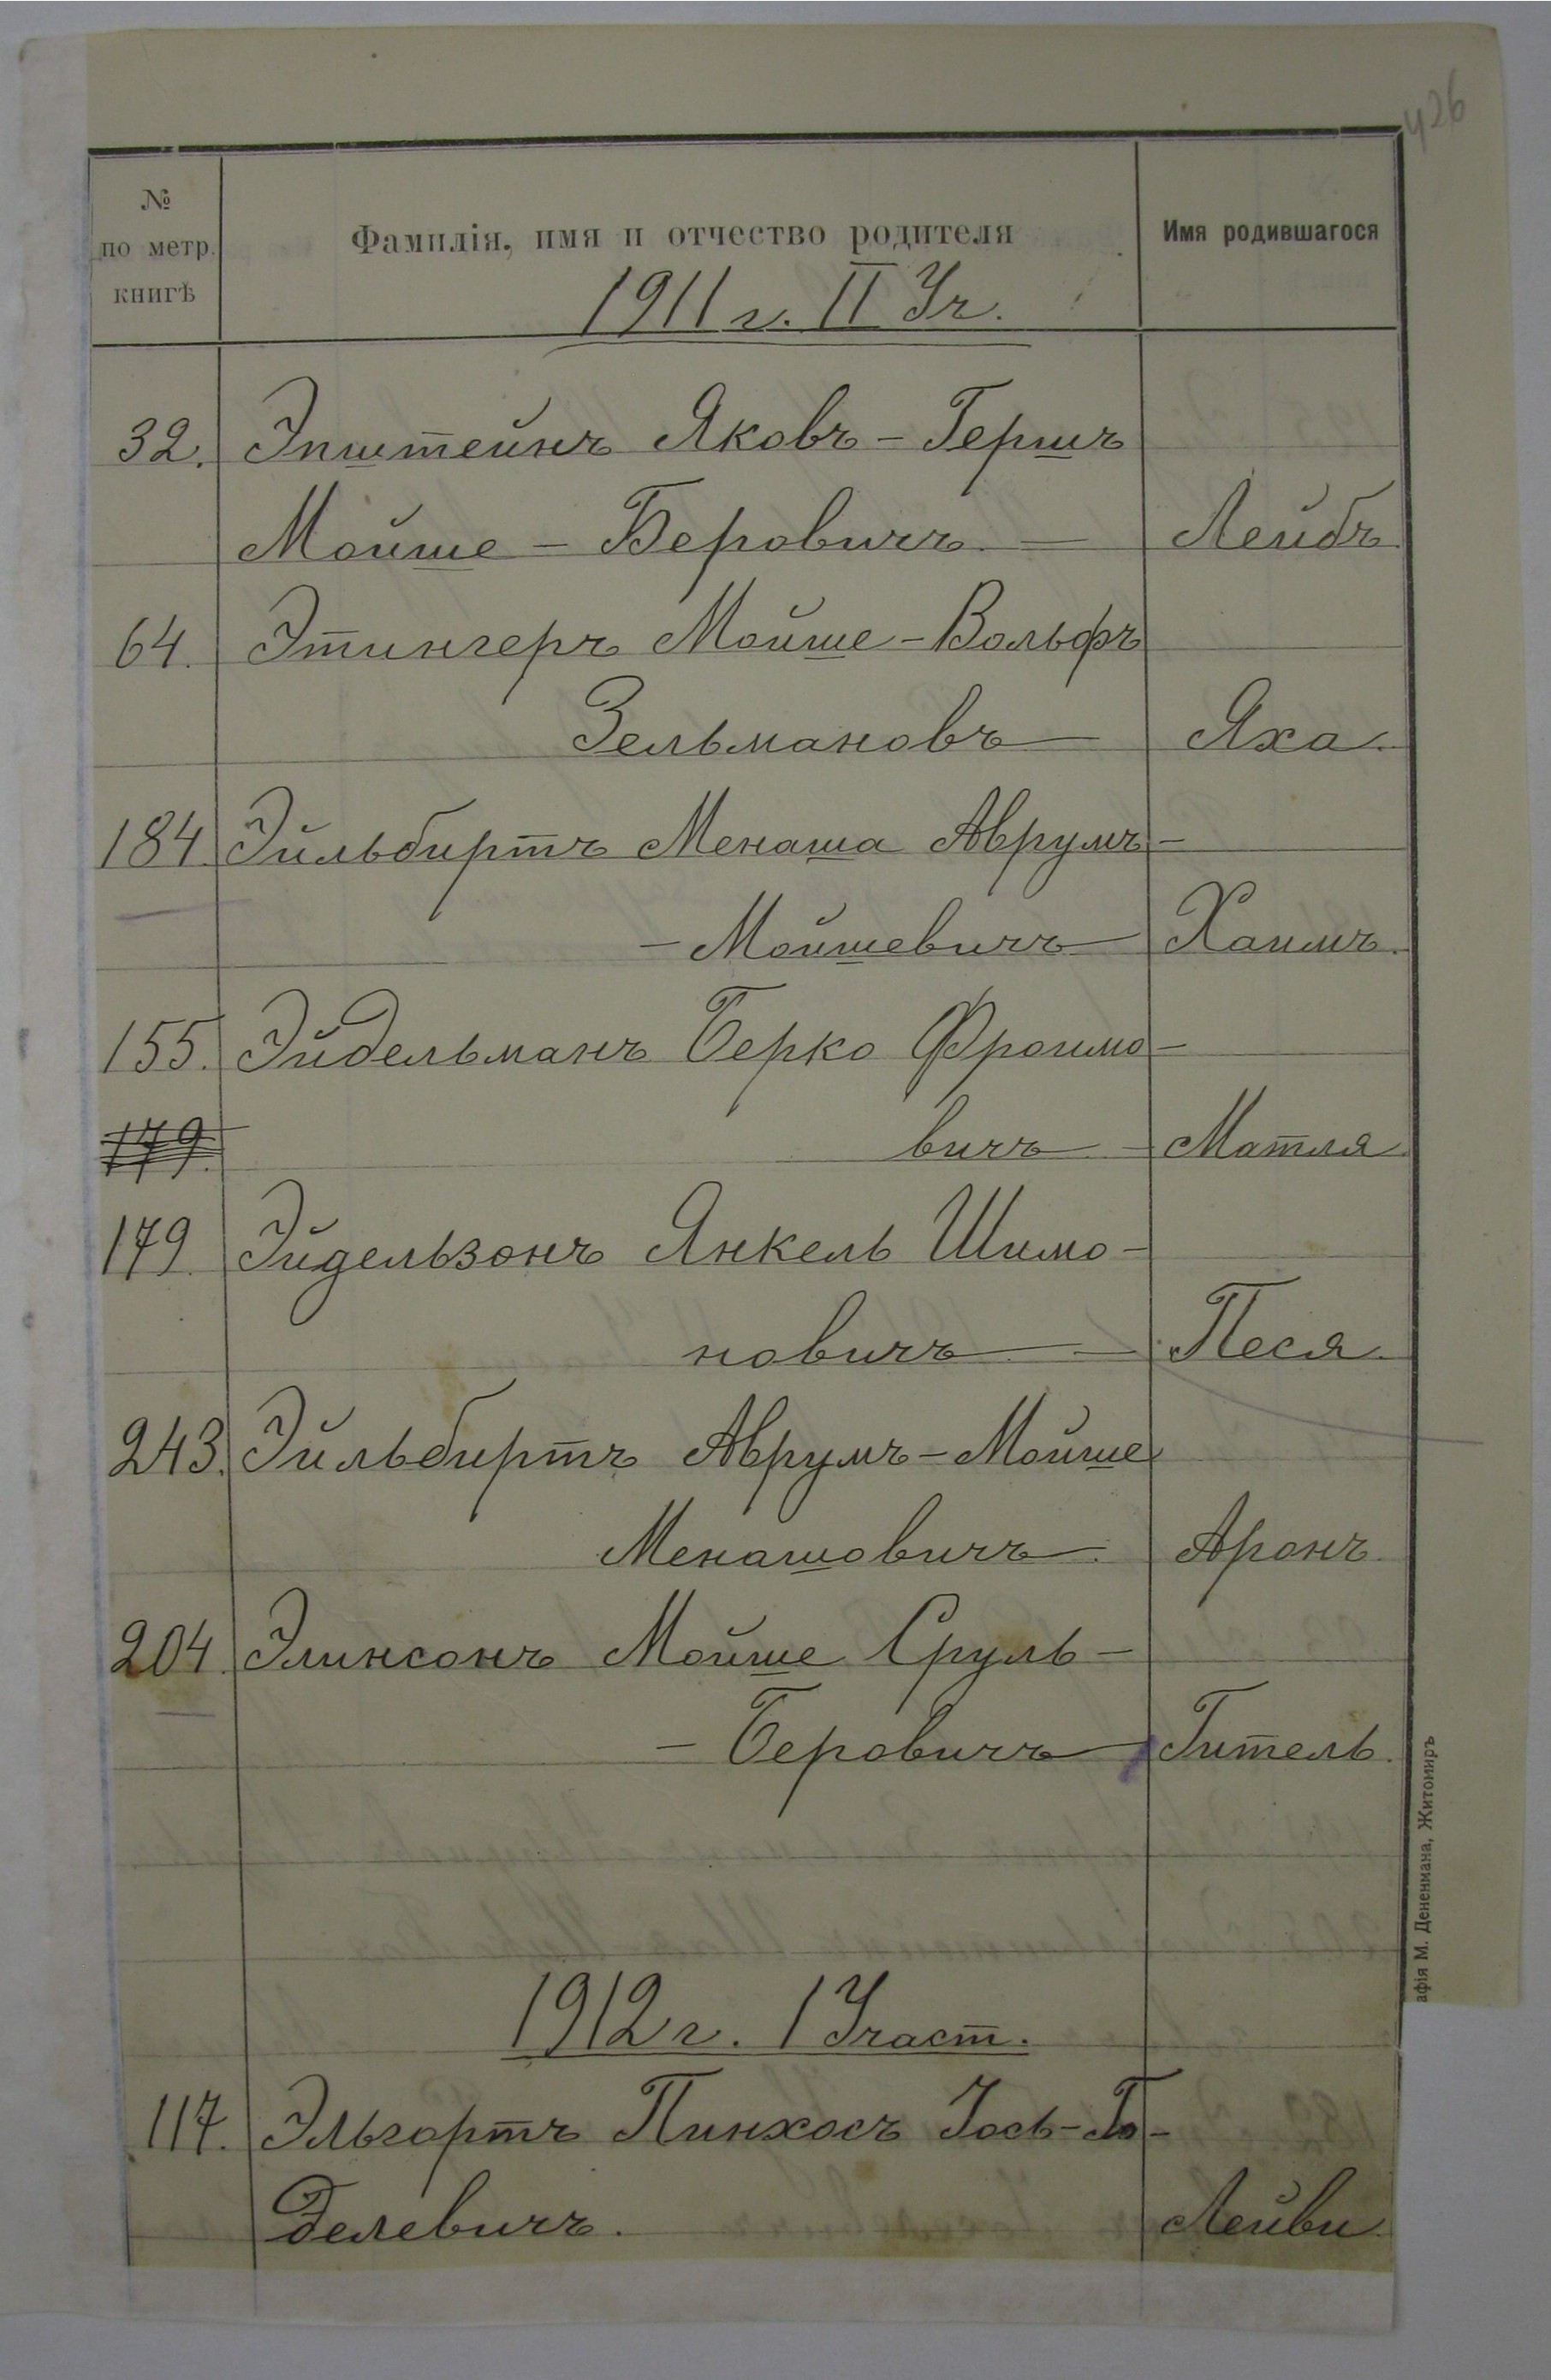 426
№ по метр. книгѣ
Фамилія, имя и отчество родителя
Имя родившагося
1911 г. II Уч.
32. Эпштейнъ Яковъ - Гершъ
Мойше - Беровичъ - Лейбъ
64. Этингеръ Мойше - Вольфъ
Зельмановъ - Яха.
184. Эйльбиртъ Менаша Аврумъ -
- Мойшевичъ Хаимъ.
155. Эйдельманъ Берко Фроимо -
179. вичъ - Матля
179. Эйдельзонъ Янкель Шимо -
новичъ - Песя.
243. Эйльбиртъ Аврумъ - Мойше
Менашовичъ. Аронъ.
204. Элинсонъ Мойше Сруль -
- Беровичъ - Гитель.
1912 г. I Участ.
117. Эльгортъ Пинхосъ Іось - Го -
делевичъ. Лейви
афія М. Дененмана, Житомиръ